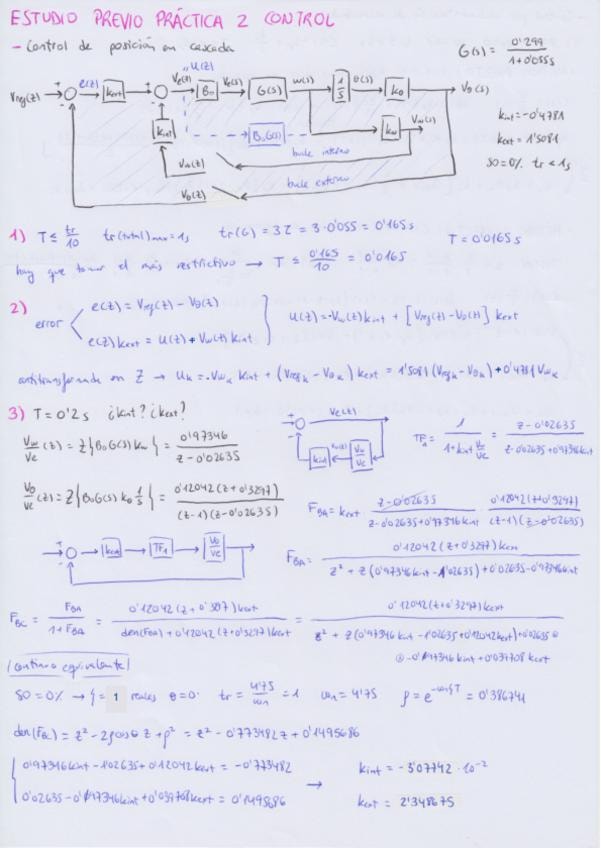 ESTUDIO PREVIO PRÁCTICA 2 CONTROL
- Control de posición en cascada
G(s) = 0'299 / 1+0'055s
Vref(z) + - e(z) kext + - Ve(z) u(z) B₀ Ve(s) G(s) w(s) 1/s θ(s) kθ Vθ(s)
kint B₀G(s) kw Vw(s)
kint = -0'4781
kext = 1'5081
SO = 0% tr < 1s
Vw(z) bucle interno
Vθ(z) bucle externo
1) T ≤ tr/10 tr(total)max = 1s tr(G) = 3τ = 3·0'055 = 0'165s T = 0'0165 s
hay que tomar el más restrictivo → T ≤ 0'165/10 = 0'0165
2)
error
e(z) = Vref(z) - Vθ(z)
e(z) kext = u(z) + Vw(z) kint
u(z) = -Vw(z) kint + [Vref(z) - Vθ(z)] kext
antitransformada en Z → uₖ = -Vwₖ kint + (Vrefₖ - Vθₖ) kext = 1'5081 (Vrefₖ - Vθₖ) + 0'4781 Vwₖ
3) T = 0'2 s ¿kint? ¿kext?
Vw/Ve (z) = Z{B₀G(s) kw} = 0'97346 / z - 0'02635
+ - Ve(z) kint Vw(z) Vw/Ve
TF₁ = 1 / 1+kint Vw/Ve = z - 0'02635 / z - 0'02635 + 0'97346kint
Vθ/Ve (z) = Z{B₀G(s) kθ 1/s} = 0'12042 (z + 0'3297) / (z-1)(z-0'02635)
F_BA = kext · z - 0'02635 / z - 0'02635 + 0'97346kint · 0'12042 (z + 0'3297) / (z-1)(z-0'02635)
+ - kext TF₁ Vθ/Ve
F_BA = 0'12042 (z + 0'3297) kext / z² + z(0'97346kint - 1'02635) + 0'02635 - 0'97346kint
F_BC = F_BA / 1+F_BA = 0'12042 (z + 0'3297) kext / den(F_BA) + 0'12042 (z + 0'3297) kext = 0'12042 (z + 0'3297) kext / z² + z(0'97346 kint - 1'02635 + 0'12042kext) + 0'02635 ⊕
⊕ -0'97346 kint + 0'039708 kext
(continuo equivalente)
SO = 0% → ζ = 1 reales θ = 0· tr = 4'75/ωn = 1 ωn = 4'75 ρ = e^-ωnζT = 0'386741
den(F_BC) = z² - 2ρcosθ z + ρ² = z² - 0'773482 z + 0'1495686
0'97346kint - 1'02635 + 0'12042 kext = -0'773482
0'02635 - 0'97346kint + 0'039708kext = 0'1495686
→ kint = -3'07742 · 10⁻²
kext = 2'348675